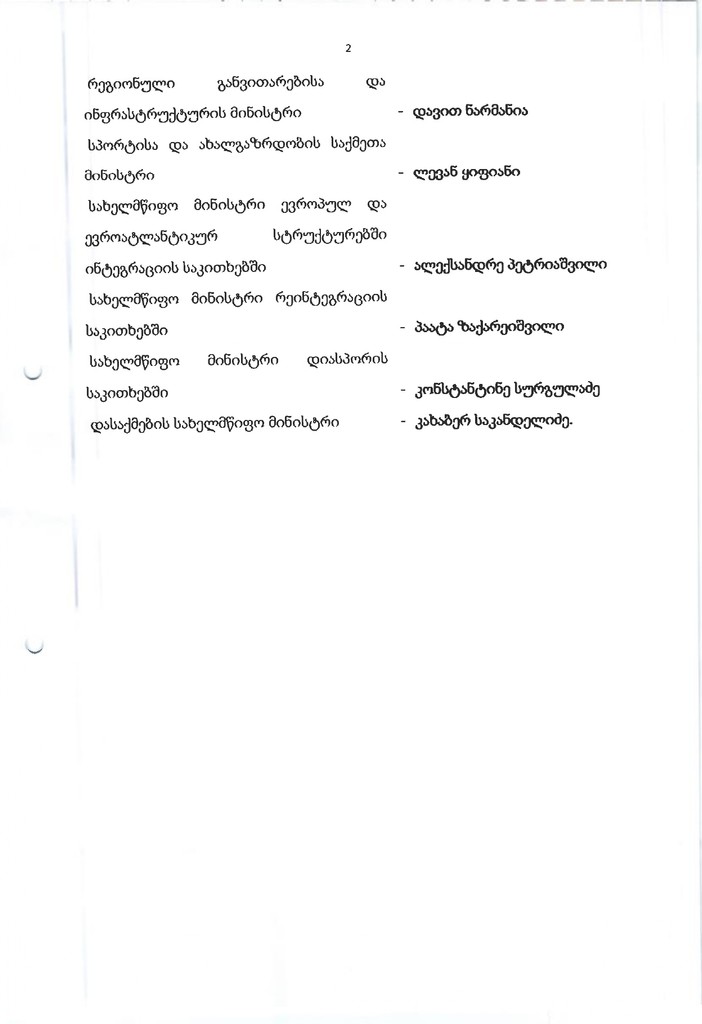 2
რეგიონული განვითარებისა და
ინფრასტრუქტურის მინისტრი - დავით ნარმანია
სპორტისა და ახალგაზრდობის საქმეთა
მინისტრი - ლევან ყიფიანი
სახელმწიფო მინისტრი ევროპულ და
ევროატლანტიკურ სტრუქტურებში
ინტეგრაციის საკითხებში - ალექსანდრე პეტრიაშვილი
სახელმწიფო მინისტრი რეინტეგრაციის
საკითხებში - პაატა ზაქარეიშვილი
სახელმწიფო მინისტრი დიასპორის
საკითხებში - კონსტანტინე სურგულაძე
დასაქმების სახელმწიფო მინისტრი - კახაბერ საკანდელიძე.